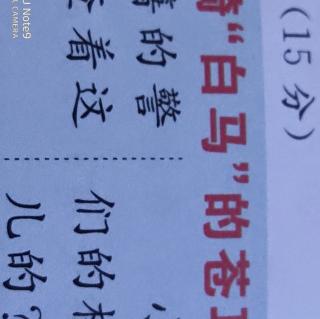 （15分）
“白马”的苍
的警
着这
们的
儿的?
Note9
CAMERA